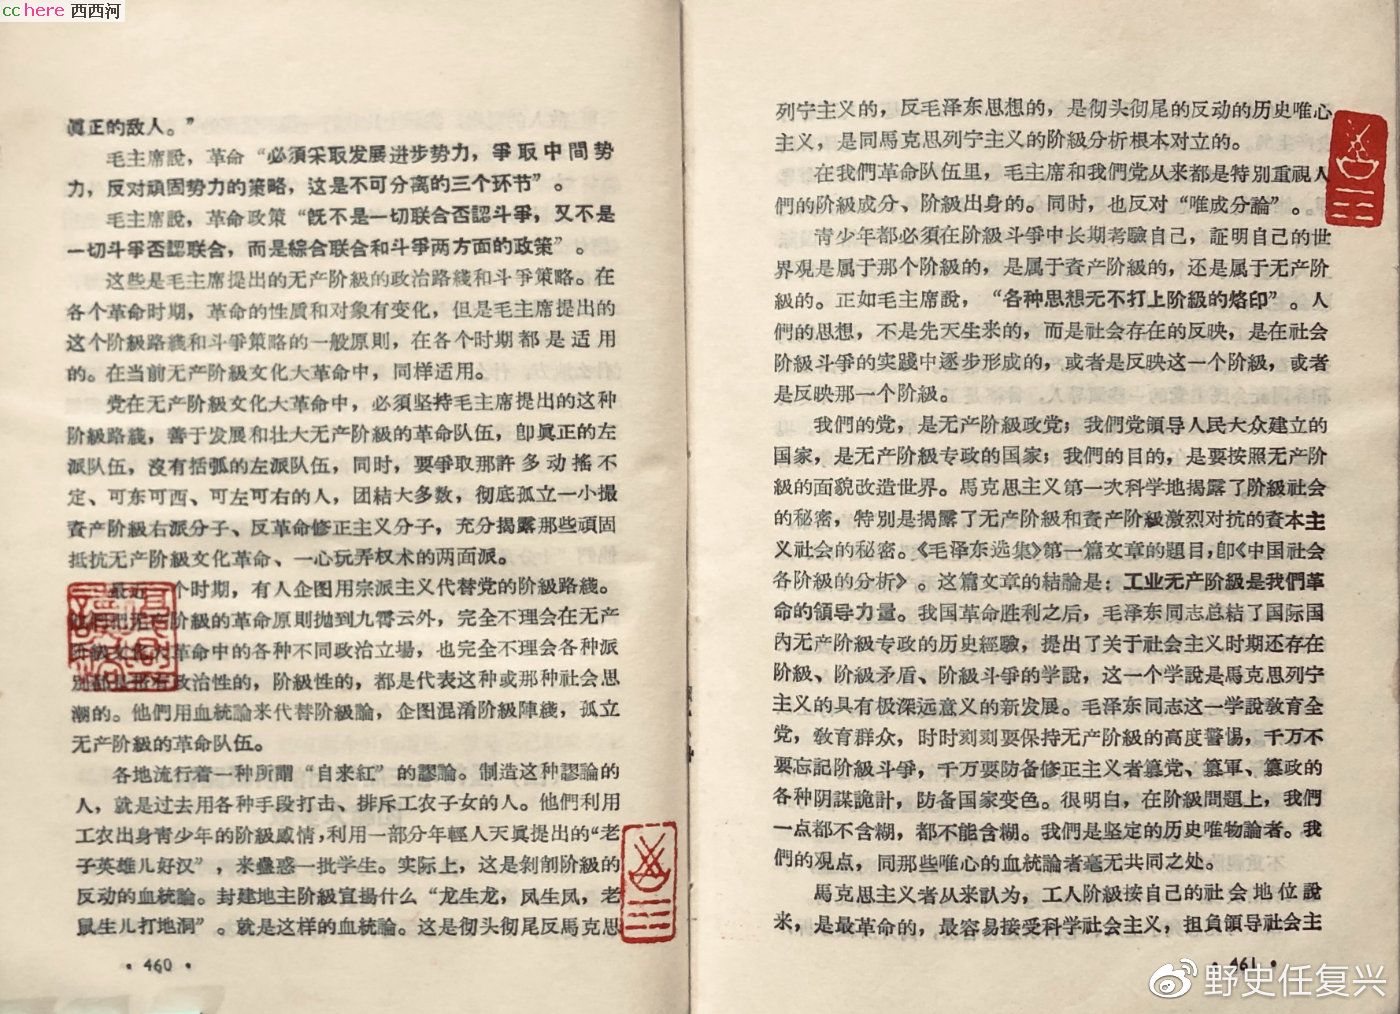 cchere 西西河
眞正的敌人。”
毛主席說，革命“必須采取发展进步势力，爭取中間势
力，反对頑固势力的策略，这是不可分离的三个环节”。
毛主席說，革命政策“旣不是一切联合否認斗爭，又不是
一切斗爭否認联合，而是綜合联合和斗爭两方面的政策”。
这些是毛主席提出的无产阶級的政治路綫和斗爭策略。在
各个革命时期，革命的性质和对象有变化，但是毛主席提出的
这个阶級路綫和斗爭策略的一般原則，在各个时期都是适用
的。在当前无产阶級文化大革命中，同样适用。
党在无产阶級文化大革命中，必須坚持毛主席提出的这种
阶級路綫，善于发展和壮大无产阶級的革命队伍，卽眞正的左
派队伍，沒有括弧的左派队伍，同时，要爭取那許多动搖不
定、可东可西、可左可右的人，团結大多数，彻底孤立一小撮
資产阶級右派分子、反革命修正主义分子，充分揭露那些頑固
抵抗无产阶級文化革命、一心玩弄权术的两面派。
最近一个时期，有人企图用宗派主义代替党的阶級路綫。
他們把无产阶級的革命原則抛到九霄云外，完全不理会在无产
阶級文化大革命中的各种不同政治立場，也完全不理会各种派
別都是带有政治性的，阶級性的，都是代表这种或那种社会思
潮的。他們用血統論来代替阶級論，企图混淆阶級陣綫，孤立
无产阶級的革命队伍。
各地流行着一种所謂“自来紅”的謬論。制造这种謬論的
人，就是过去用各种手段打击、排斥工农子女的人。他們利用
工农出身靑少年的阶級感情，利用一部分年輕人天眞提出的“老
子英雄儿好汉”，来蠱惑一批学生。实际上，这是剝削阶級的
反动的血統論。封建地主阶級宣揚什么“龙生龙，凤生凤，老
鼠生儿打地洞”。就是这样的血統論。这是彻头彻尾反馬克思
· 460 ·
列宁主义的，反毛泽东思想的，是彻头彻尾的反动的历史唯心
主义，是同馬克思列宁主义的阶級分析根本对立的。
在我們革命队伍里，毛主席和我們党从来都是特別重視人
們的阶級成分、阶級出身的。同时，也反对“唯成分論”。
靑少年都必須在阶級斗爭中长期考驗自己，証明自己的世
界观是属于那个阶級的，是属于資产阶級的，还是属于无产阶
級的。正如毛主席說，“各种思想无不打上阶級的烙印”。人
們的思想，不是先天生来的，而是社会存在的反映，是在社会
阶級斗爭的实踐中逐步形成的，或者是反映这一个阶級，或者
是反映那一个阶級。
我們的党，是无产阶級政党；我們党領导人民大众建立的
国家，是无产阶級专政的国家；我們的目的，是要按照无产阶
級的面貌改造世界。馬克思主义第一次科学地揭露了阶級社会
的秘密，特別是揭露了无产阶級和資产阶級激烈对抗的資本主
义社会的秘密。《毛泽东选集》第一篇文章的題目，卽《中国社会
各阶級的分析》。这篇文章的結論是：工业无产阶級是我們革
命的領导力量。我国革命胜利之后，毛泽东同志总結了国际国
內无产阶級专政的历史經驗，提出了关于社会主义时期还存在
阶級、阶級矛盾、阶級斗爭的学說，这一个学說是馬克思列宁
主义的具有极深远意义的新发展。毛泽东同志这一学說敎育全
党，敎育群众，时时刻刻要保持无产阶級的高度警惕，千万不
要忘記阶級斗爭，千万要防备修正主义者篡党、篡軍、篡政的
各种阴謀詭計，防备国家变色。很明白，在阶級問題上，我們
一点都不含糊，都不能含糊。我們是坚定的历史唯物論者。我
們的观点，同那些唯心的血統論者毫无共同之处。
馬克思主义者从来訃为，工人阶級按自己的社会地位說
来，是最革命的，最容易接受科学社会主义，担負領导社会主
· 461 ·
野史任复兴